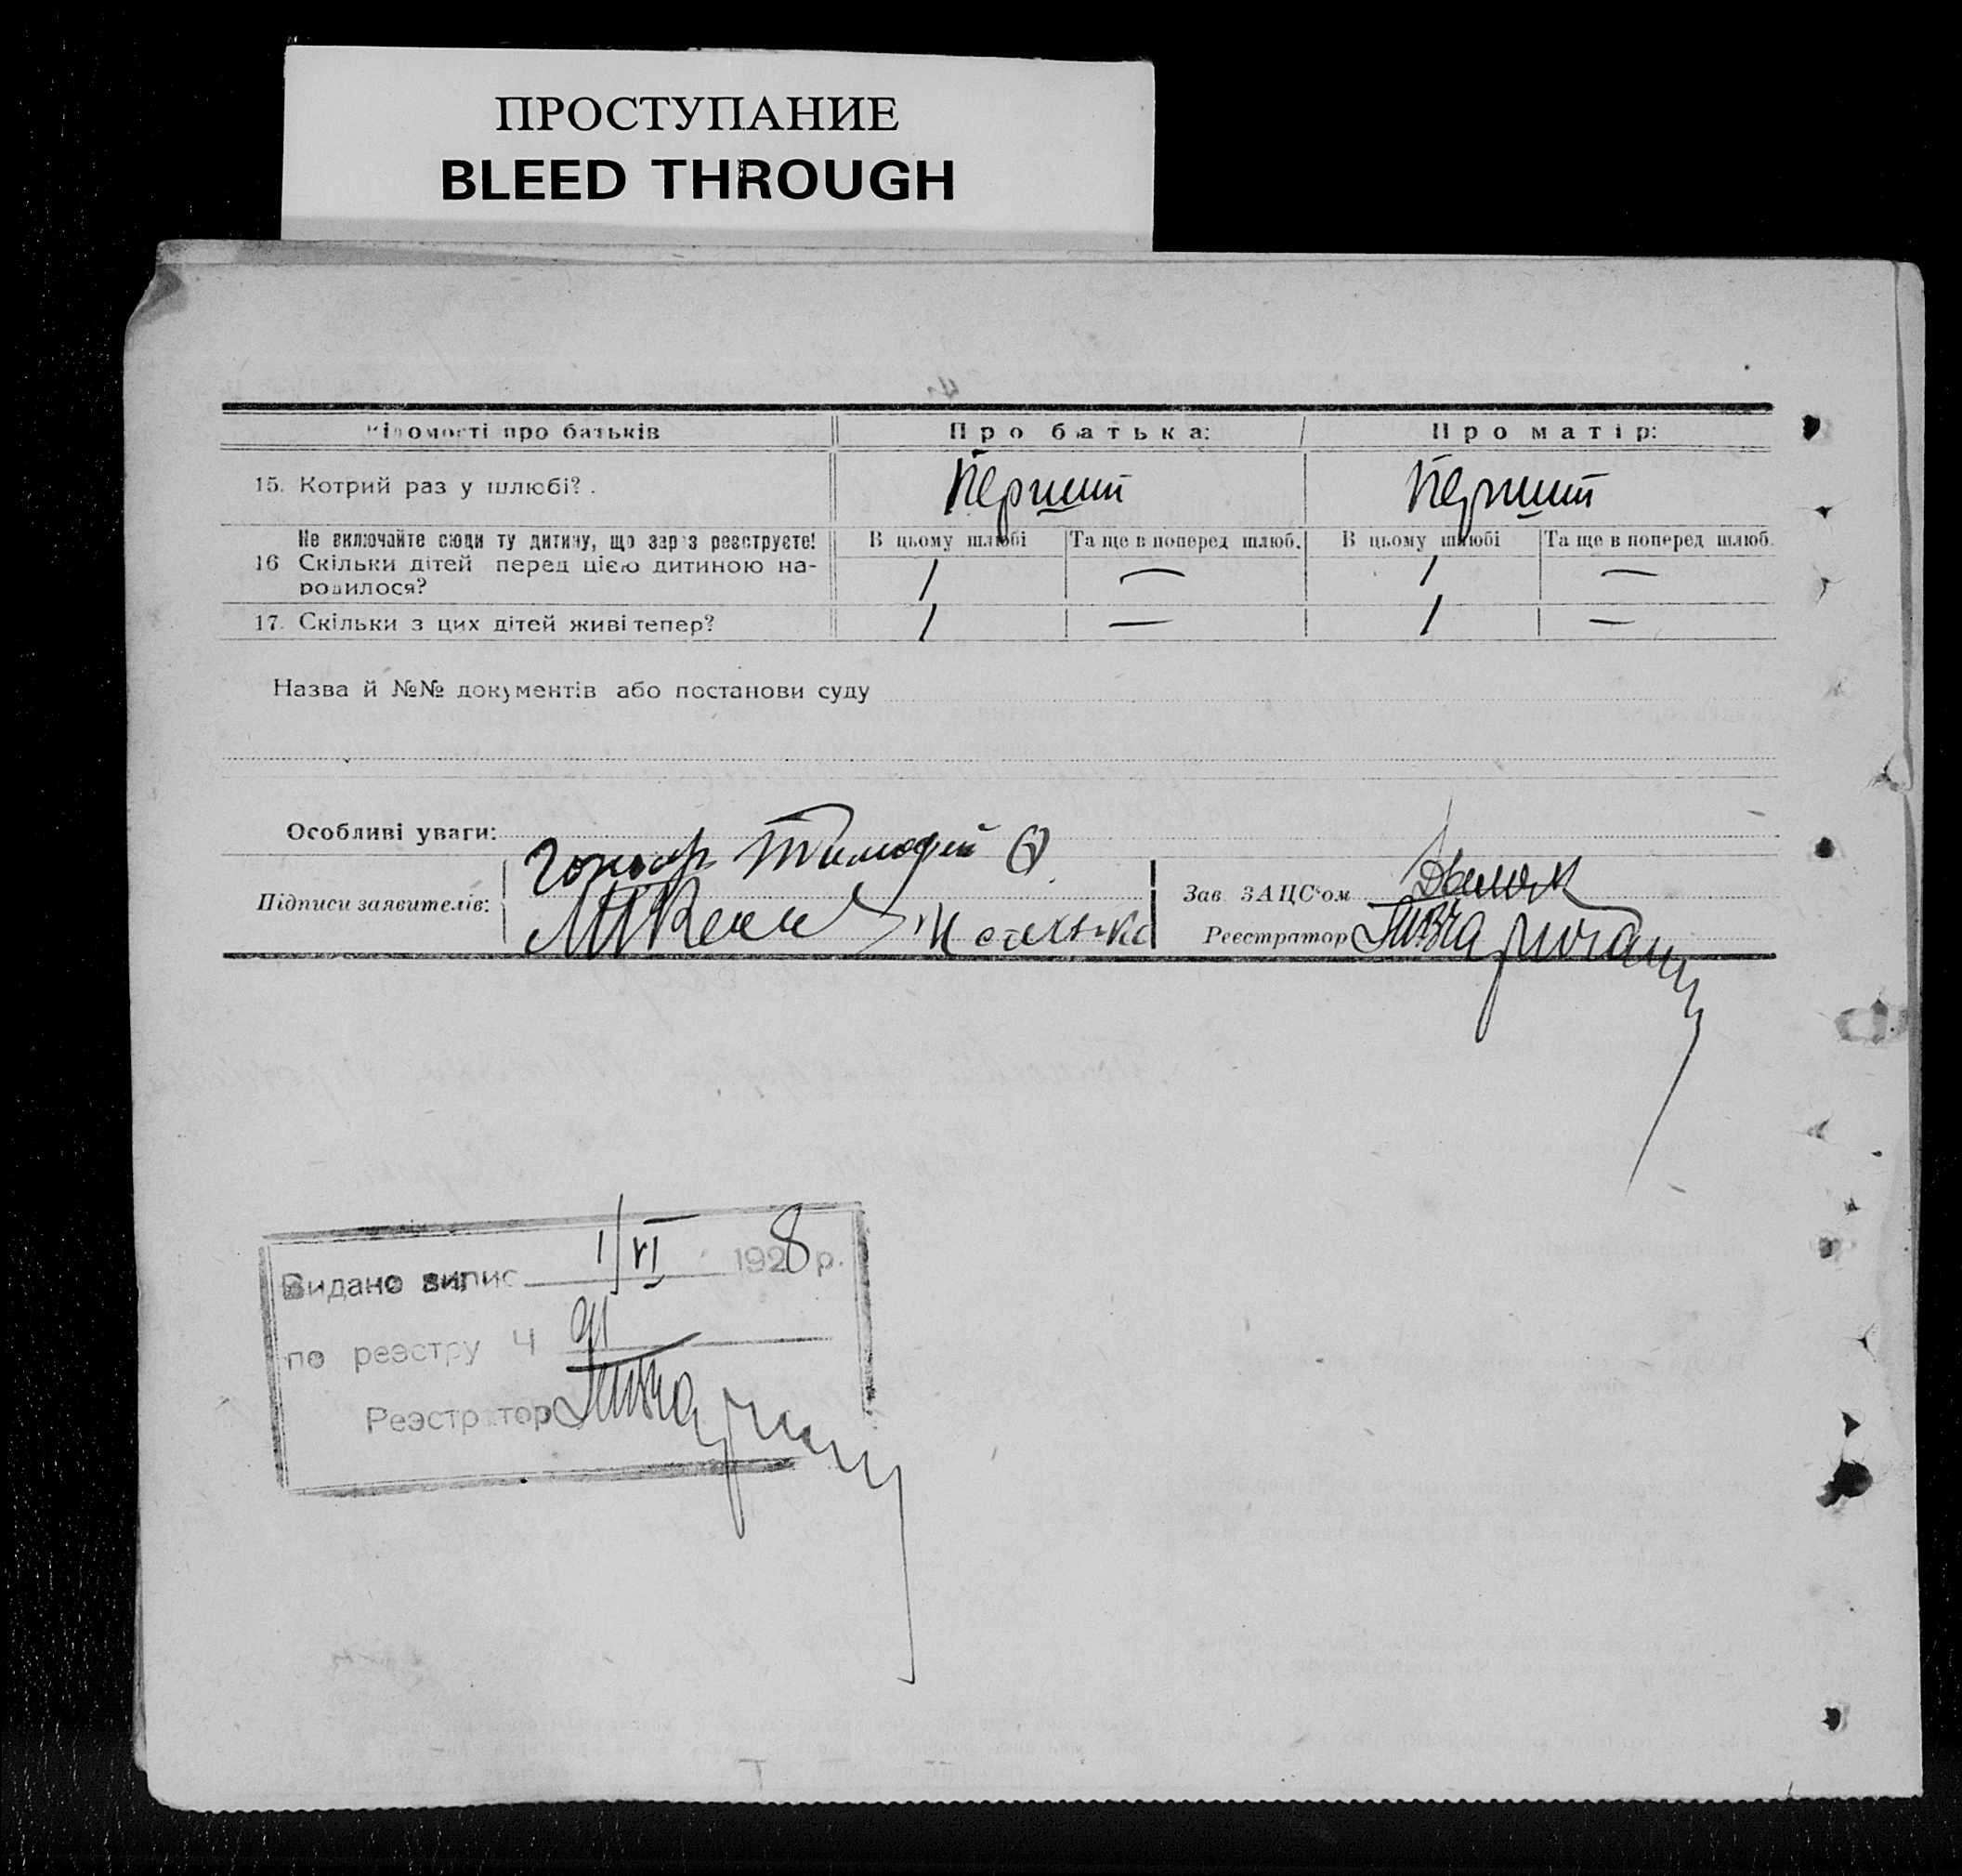 ПРОСТУПАНИЕ
BLEED THROUGH
Відомості про батьків Про батька: Про матір:
15. Котрий раз у шлюбі? . Перший Перший
Не включайте сюди ту дитину, що зараз реєструєте! В цьому шлюбі Та ще в поперед шлюб. В цьому шлюбі Та ще в поперед шлюб.
16 Скільки дітей перед цією дитиною на- 1 — 1 —
родилося?
17. Скільки з цих дітей живі тепер? 1 — 1 —
Назва й №№ документів або постанови суду
Особливі уваги:
Гончар Тимофей
Підписи заявителів:
Зав. ЗАЦС'ом
Реєстратор
Видано випис 1/VI 1928 р.
по реэстру Ч 91
Реэстратор